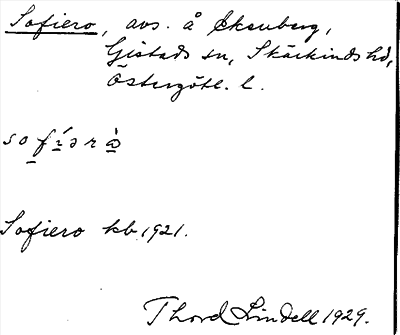 Sofiero, avs. å Ekenberg,
Gistads sn, Skärkinds hd,
Östergötl. l.
Sofiero kb. 1921.
Thord Lindell 1929.